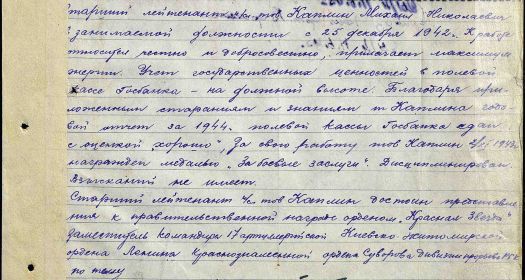 Старший лейтенант а/с тов Каплин Михаил Николаевич
занимаемой должности с 25 декабря 1942г. К работе
относится честно и добросовестно, прилагает максимум
энергии. Учет государственных ценностей в полевой
кассе Госбанка - на должной высоте. Благодаря при
ложенным стараниям и знаниям т Каплина годо-
вой отчет за 1944г. полевой кассы Госбанка сдан
с оценкой хорошо". За свою работу тов Каплин
награжден медалью „За боевые заслуги". Дисциплинирован.
Взысканий не имеет.
Старший лейтенант а/с тов Каплин достоин представле
ния к правительственной награде орденом „Красная Звезда"
Заместитель командира 17 артиллерийской Киевско-Житомирской
ордена Ленина Краснознаменной ордена Суворова дивизии прорыва РГК
по тылу